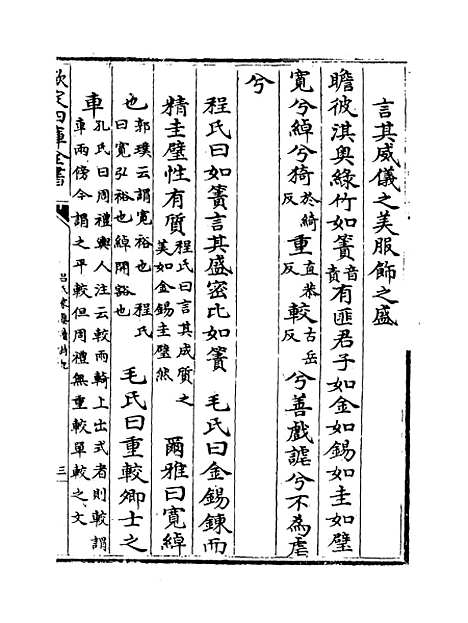 言其威儀之美服飾之盛
瞻彼淇奧綠竹如簀音責有匪君子如金如錫如圭如璧
寬兮綽兮猗於綺反重直恭反較古岳反兮善戲謔兮不為虐
兮
程氏曰如簀言其盛密比如簀 毛氏曰金錫鍊而
精圭璧性有質程氏曰言其成質之美如金錫圭璧然 爾雅曰寬綽
也郭璞云謂寬裕也 程氏曰寬弘裕也綽開豁也 毛氏曰重較卿士之
車孔氏曰周禮輿人注云較兩輢上出式者則較謂車兩傍今謂之平較但周禮無重較單較之文
欽定四庫全書
呂氏家塾讀詩記
三